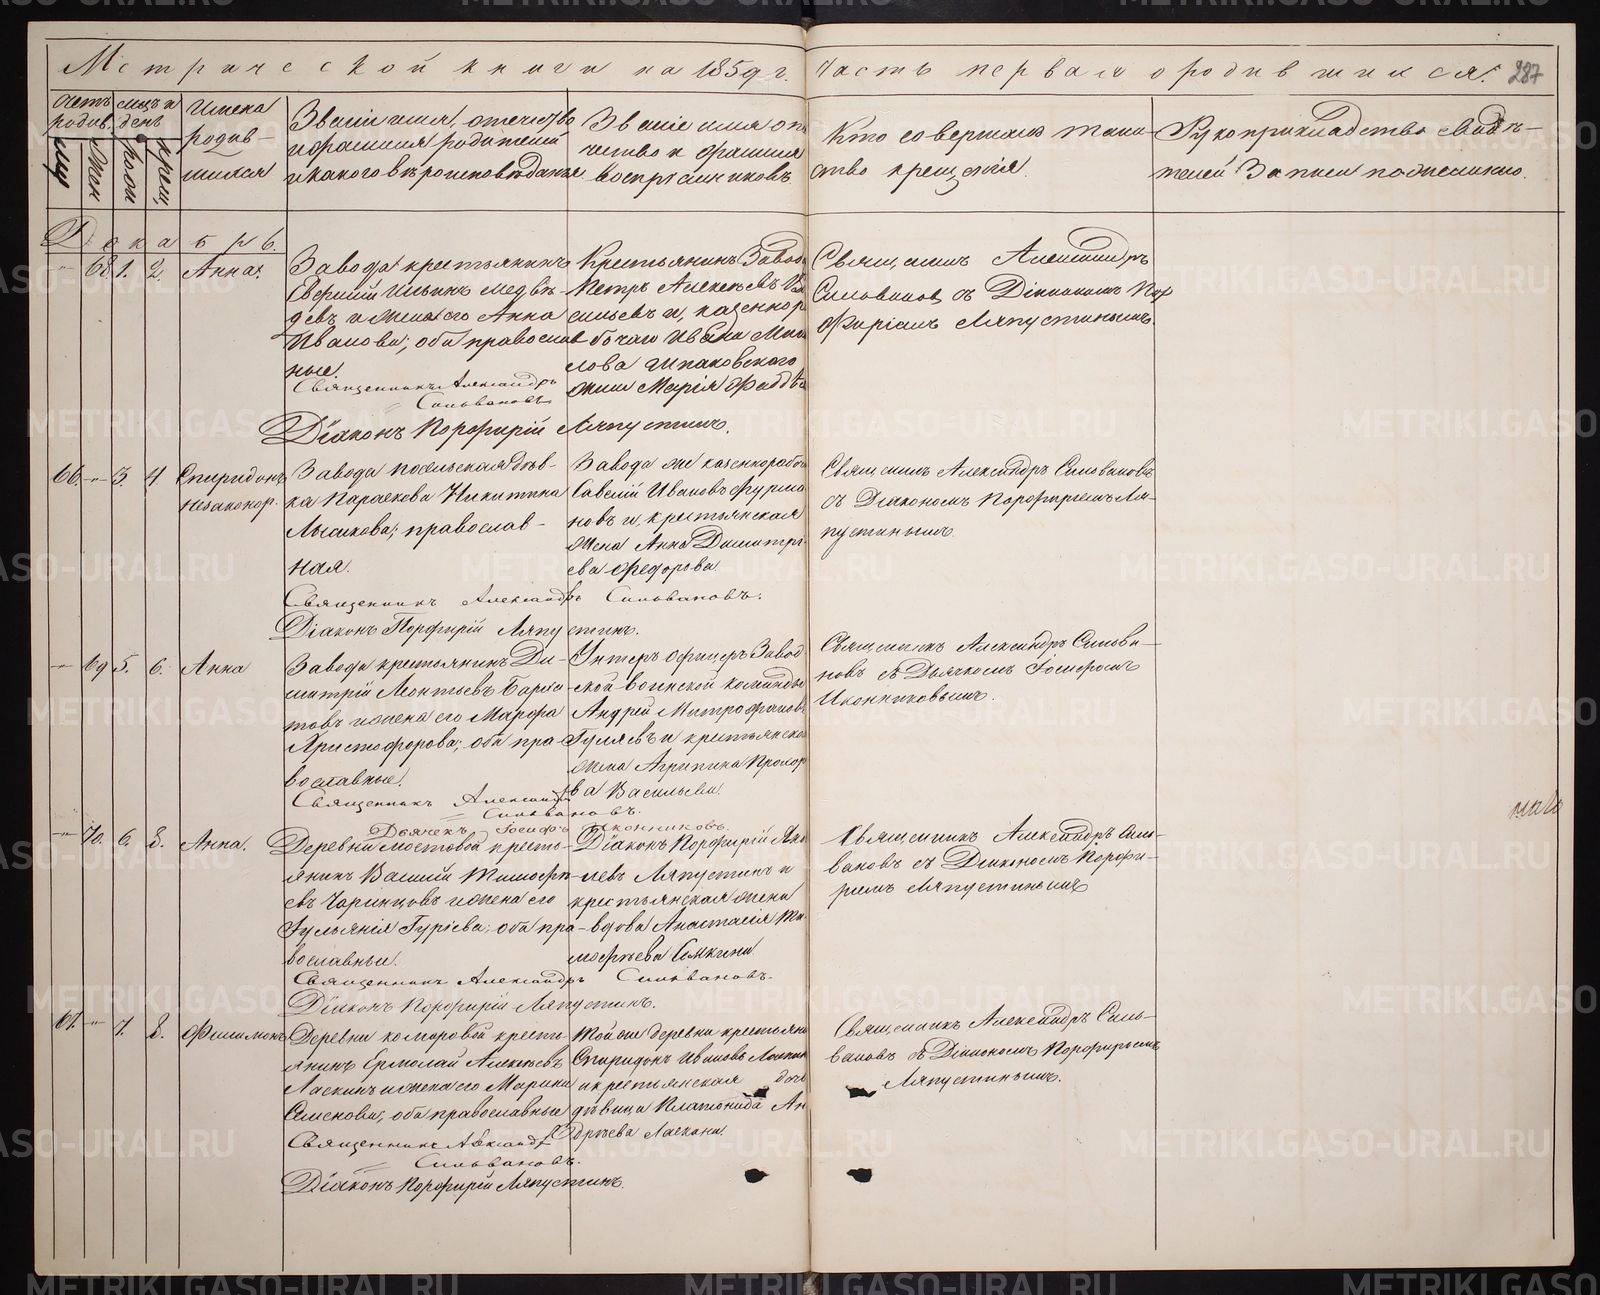 Метрической книги на 1859 г. часть первая о родившихся. 287
Счетъ родив.
муж.
жен.
мѣсяцъ и день
рожд.
крещ.
Имена
родив-
шихся
Званіе имя, отечество
и фамилія родителей
и какого вѣроисповѣданія.
Званіе имя оте
чество и фамилія
воспріемниковъ.
Кто совершалъ таин-
ство крещенія.
Рукоприкладство свидѣ-
телей записи по желанію.
Декабрь.
" 68. 1. 2. Анна.
Завода крестьянинъ
Евфимій Ильинъ Медвѣ-
девъ и жена его Анна
Иванова; оба православ
ные.
Священникъ Александръ
Сильвановъ
Діаконъ Порфирій Ляпустинъ.
Крестьянинъ Завода
Петръ Алексѣевъ Ва
сильевъ и, казеннора
бочаго Ивана Миха
лова Шпаковскаго
жена Марія Фаддѣ
Священникъ Александръ
Сильвановъ съ Діакономъ Пор
фиріемъ Ляпустинымъ.
66. " 3. 4. Спиридонъ
незаконор.
Завода посельская дѣв-
ка Параскева Никитина
Лысикова; православ-
ная.
Священникъ Александръ Сильвановъ.
Діаконъ Порфирій Ляпустинъ.
Завода же казеннорабоч
Савелій Ивановъ Фурма
новъ и, крестьянская
жена Анна Димитрі
ева Федорова.
Священникъ Александръ Сильвановъ
съ Діакономъ Порфиріемъ Ля-
пустинымъ.
" 69 5. 6. Анна
Завода крестьянинъ Ди-
митрій Леонтьевъ Барсу
ковъ и жена его Марфа
Христофорова; оба пра-
вославные.
Священникъ Александръ
Сильвановъ.
Дьячекъ Іосифъ Иконниковъ.
Унтеръ офицеръ Завод
ской воинской команды
Андрей Митрофановъ
Гуляевъ и крестьянска
жена Агрипина Прохор
ва Васильева.
Священникъ Александръ Сильва-
новъ съ Дьячкомъ Іосифомъ
Иконниковымъ.
" 70. 6. 8. Анна.
Деревни Мостовой кресть-
янинъ Василій Тимофѣ-
евъ Чаринцовъ и жена его
Іульянія Гурѣева; оба пра-
вославные.
Священникъ Александръ Сильвановъ.
Діаконъ Порфирій Ляпустинъ.
Діаконъ Порфирій Яко
левъ Ляпустинъ и
крестьянская жена
вдова Анастасія Ти
мофѣева Сажкина
Священникъ Александръ Силь-
вановъ съ Діакономъ Порфи-
ріемъ Ляпустинымъ
67. " 7. 8. Филимонъ
Деревни Комаровой кресть-
янинъ Ермолай Алексѣевъ
Ласкинъ и жена его Марина
Семенова; оба православные
Священникъ Александръ
Сильвановъ.
Діаконъ Порфирій Ляпустинъ.
Той же деревни крестьяни
Спиридонъ Ивановъ Ласкин
и крестьянская дочь
дѣвица Платонида Ан
дреева Ласкина.
Священникъ Александръ Силь-
вановъ съ Діакономъ Порфиріемъ
Ляпустинымъ.